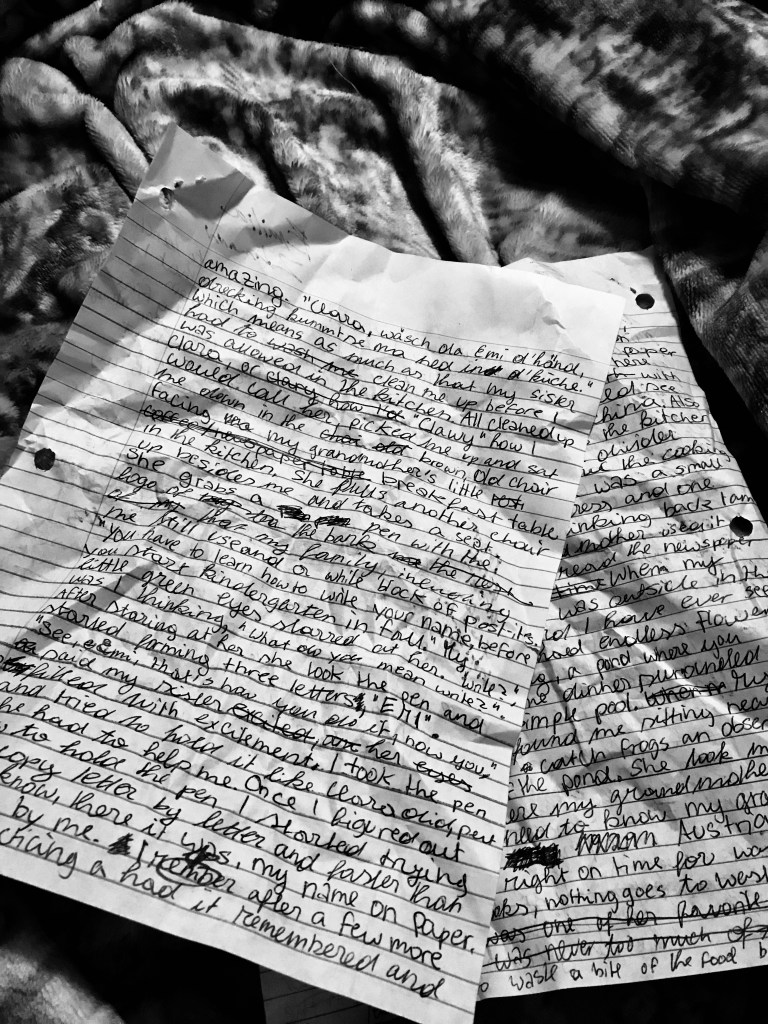 amazing. "Clara, wäsch da Emi d'händ,
dreckig kummt se ma ned in d'küche."
which means as much as that my sister
had to wash me clean me up before I
was allowed in the kitchen. All cleaned up
Clara or "Clawy" how I
would call her, picked me up and sat
me down in the old brown, old chair
facing my grandmother's little
breakfast table
in the kitchen. She pulls another chair
up besides me and takes a seat.
She grabs a pen with the
logo of the bank
that my family, including
me still use and a white block of Post-its.
"You have to learn how to write your name before
you start Kindergarten in fall." My
little green eyes starred at her. "Write",
was I thinking, "what does mean write?".
After staring at her she took the pen and
started forming three letters "EMI".
"See Emi, that's how you do it, now you,"
said my sister excited, her eyes
filled with excitement. I took the pen
and tried to hold it like Clara did but
she had to help me. Once I figured out
how to hold the pen I started trying
copy letter by letter and faster than
know, there it was, my name on paper,
by me. I remember after a few more
I had it remembered and
paper
here
with
see
china. Als
the kitchen
the cooking
was a small
and one
thinking back I am
mother used it
read the newspaper
time When my
was outside in the
I have ever seen
endless flower
a pond where you
dinner surrounded
simple pool.
found me sitting near
catch frogs an obser
the pond. She look m
my grandmothe
need to know my gra
Austria
right on time for wa
nothing goes to wast
was one of her favorite
was never too much of
waste a bite of the food b